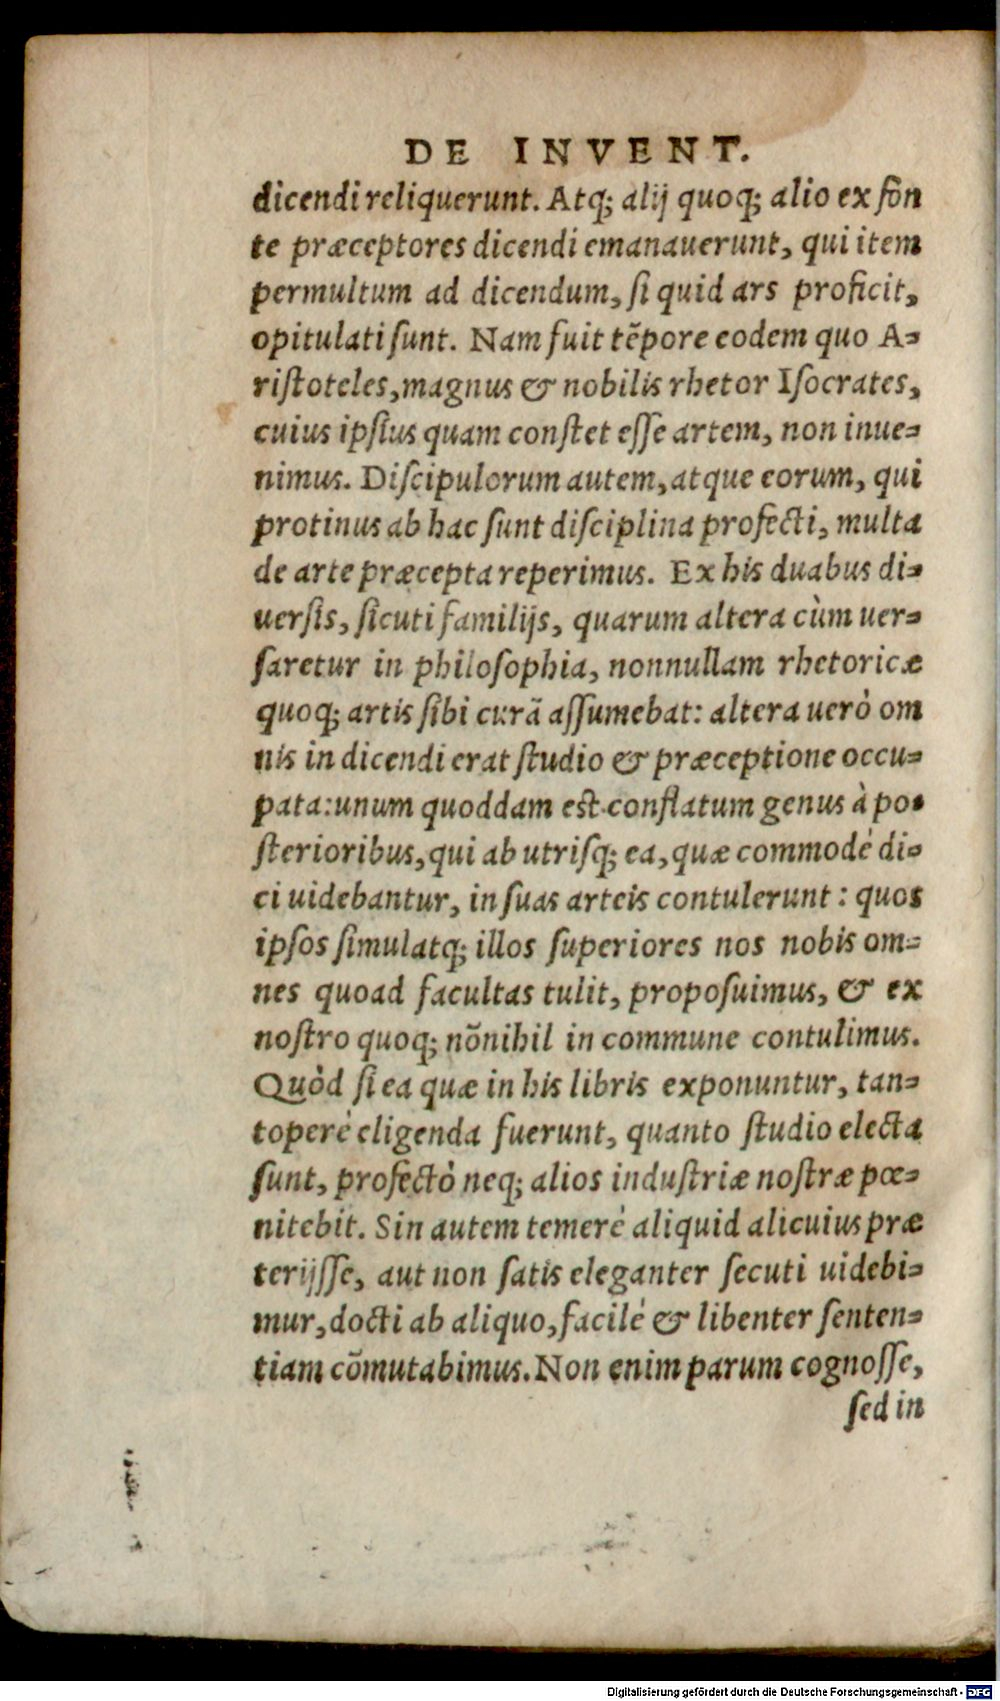 DE INVENT.
dicendi reliquerunt. Atq; alij quoq; alio ex fõn
te præceptores dicendi emanauerunt, qui item
permultum ad dicendum, ſi quid ars proficit,
opitulati ſunt. Nam fuit tẽpore eodem quo A-
riſtoteles, magnus & nobilis rhetor Iſocrates,
cuius ipſius quam conſtet eſſe artem, non inue-
nimus. Diſcipulorum autem, atque eorum, qui
protinus ab hac ſunt diſciplina profecti, multa
de arte præcepta reperimus. Ex his duabus di-
uerſis, ſicuti familijs, quarum altera cùm uer-
ſaretur in philoſophia, nonnullam rhetoricæ
quoq; artis ſibi curã aſſumebat: altera uerò om
nis in dicendi erat ſtudio & præceptione occu-
pata: unum quoddam est conflatum genus à po-
ſterioribus, qui ab utriſq; ea, quæ commodè di-
ci uidebantur, in ſuas arteis contulerunt: quos
ipſos ſimulatq; illos ſuperiores nos nobis om-
nes quoad facultas tulit, propoſuimus, & ex
noſtro quoq; nõnihil in commune contulimus.
Quòd ſi ea quæ in his libris exponuntur, tan-
toperè eligenda fuerunt, quanto ſtudio electa
ſunt, profectò neq; alios induſtriæ noſtræ pœ-
nitebit. Sin autem temerè aliquid alicuius præ
terijſſe, aut non ſatis eleganter ſecuti uidebi-
mur, docti ab aliquo, facilè & libenter ſenten-
tiam cõmutabimus. Non enim parum cognoſſe,
ſed in
Digitalisierung gefördert durch die Deutsche Forschungsgemeinschaft - DFG